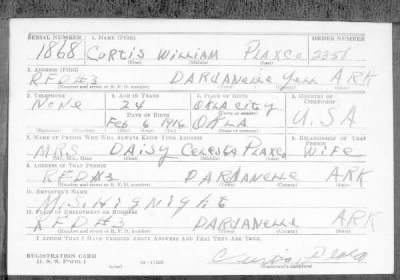 SERIAL NUMBER 1. NAME (Print) ORDER NUMBER
1868 CURTIS WILLIAM PLAXCO 2351
(First) (Middle) (Last)
2. ADDRESS (Print)
RFD #3 DARDANELLE Yell ARK
(Number and street or R. F. D. number) (Town) (County) (State)
3. TELEPHONE 4. AGE IN YEARS 5. PLACE OF BIRTH 6. COUNTRY OF CITIZENSHIP
NONE 24 OKLA CITY
DATE OF BIRTH (Town or county)
Feb 6 1916 OKLA U.S.A
(Exchange) (Number) (Mo.) (Day) (Yr.) (State or country)
7. NAME OF PERSON WHO WILL ALWAYS KNOW YOUR ADDRESS 8. RELATIONSHIP OF THAT PERSON
MRS DAISY Celesta PLAXCO WIFE
(Mr., Mrs., Miss) (First) (Middle) (Last)
9. ADDRESS OF THAT PERSON
RFD #3 DARDANELLE ARK
(Number and street or R. F. D. number) (Town) (County) (State)
10. EMPLOYER'S NAME
11. PLACE OF EMPLOYMENT OR BUSINESS
RFD #3 DARDANELLE ARK
(Number and street or R. F. D. number) (Town) (County) (State)
I AFFIRM THAT I HAVE VERIFIED ABOVE ANSWERS AND THAT THEY ARE TRUE.
REGISTRATION CARD
D. S. S. FORM 1 Curtis Plaxco
(Registrant's signature)